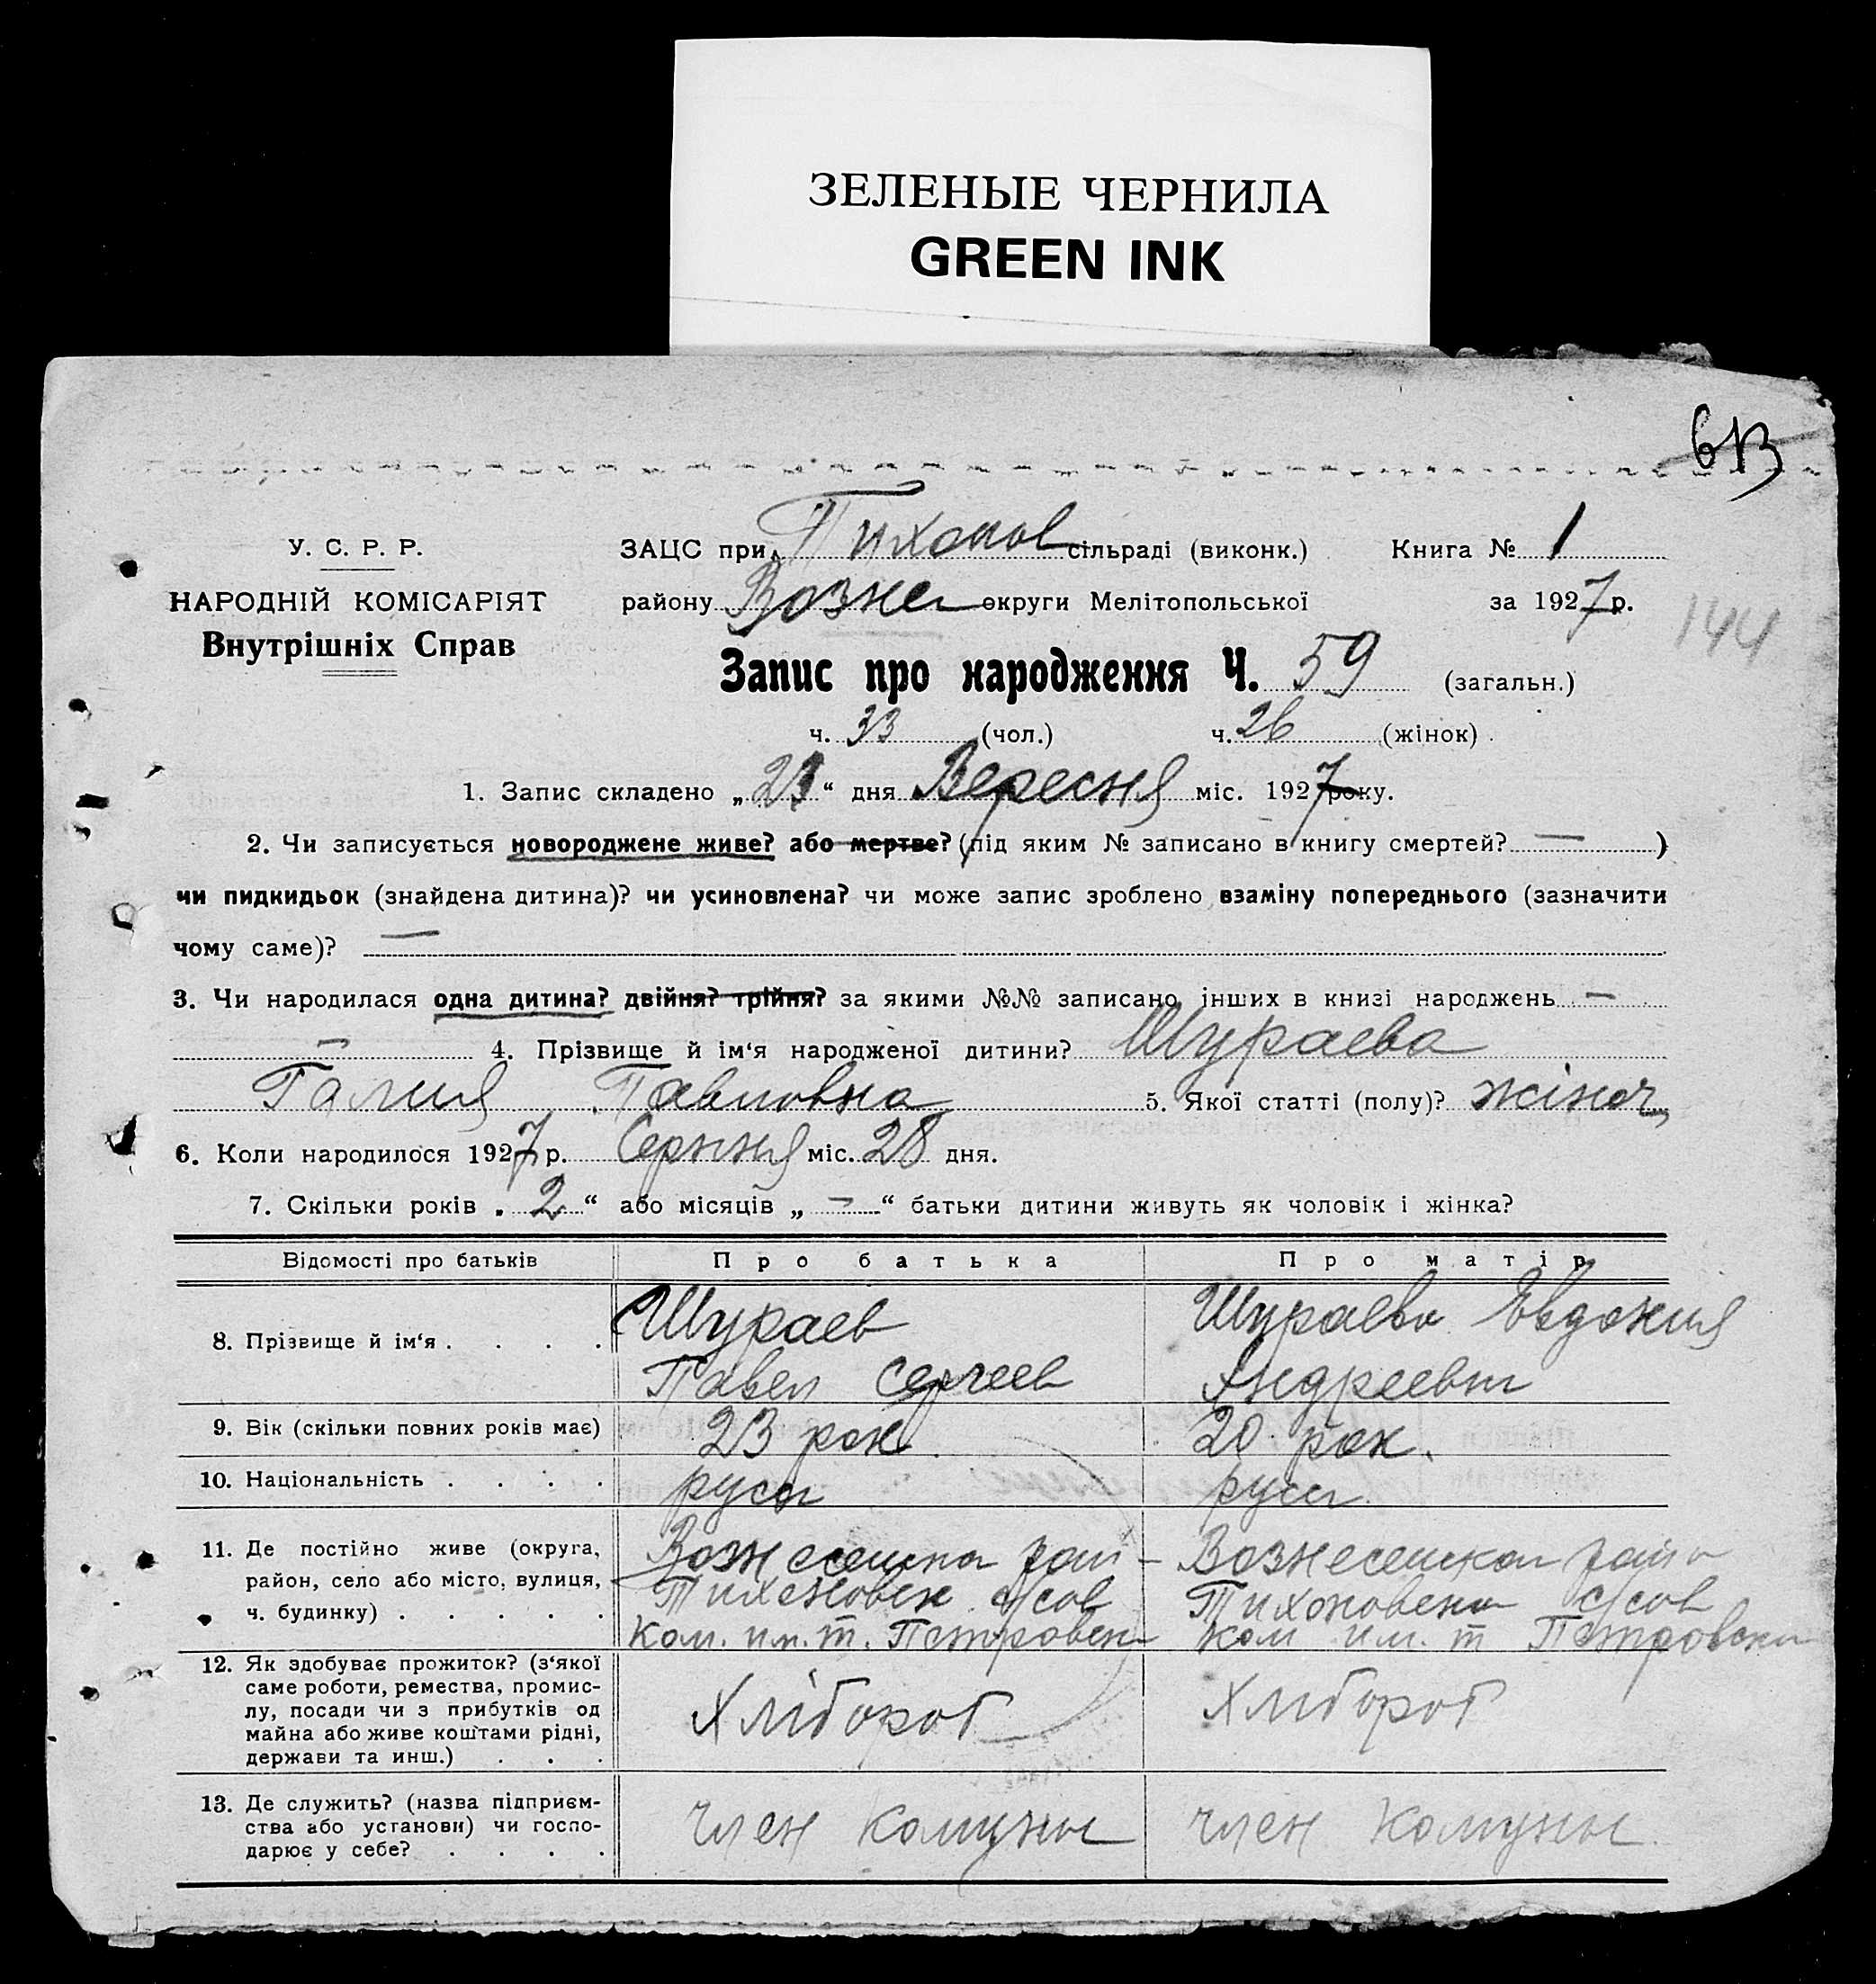 ЗЕЛЕНЫЕ ЧЕРНИЛА
GREEN INK
613
У. С. Р. Р. ЗАЦС при Тихонов сільраді (виконк.) Книга № 1
НАРОДНІЙ КОМІСАРІЯТ району Возне округи Мелітопольської за 1927 р.
144
Внутрішніх Справ
Запис про народження Ч. 59 (загальн.)
ч. 33 (чол.) ч. 26 (жінок)
1. Запис складено „23“ дня Вересня міс. 1927 року.
2. Чи записується новороджене живе? або мертве? (під яким № записано в книгу смертей? — )
чи пидкидьок (знайдена дитина)? чи усиновлена? чи може запис зроблено взаміну попереднього (зазначити
чому саме)? —
3. Чи народилася одна дитина? двійня? трійня? за якими №№ записано інших в книзі народжень —
— 4. Прізвище й ім‘я народженої дитини? Шураева
Галия Павловна 5. Якої статті (полу)? жіноч
6. Коли народилося 1927 р. Серпня міс. 28 дня.
7. Скільки років „2“ або місяців „—“ батьки дитини живуть як чоловік і жінка?
Відомості про батьків Про батька Про матір
8. Прізвище й ім‘я . . . . Шураев Шураева Евдокия
Павел Сергеев Андреевн
9. Вік (скільки повних років має) 23 рок. 20 рок.
10. Національність . . . . руск руск
11. Де постійно живе (округа, Вознесенска рай- Вознесенскоа район
район, село або місто, вулиця, Тихоновск с/сов Тихоновска с/сов
ч. будинку) . . . . . Ком. им. т. Петровск Ком им. т Петровски
12. Як здобуває прожиток? (з‘якої
саме роботи, ремества, промис-
лу, посади чи з прибутків од Хлібороб Хлібороб
майна або живе коштами рідні,
держави та инш.) . . .
13. Де служить? (назва підприєм-
ства або установи) чи госпо- член комуны член комуны
дарює у себе? . . . .